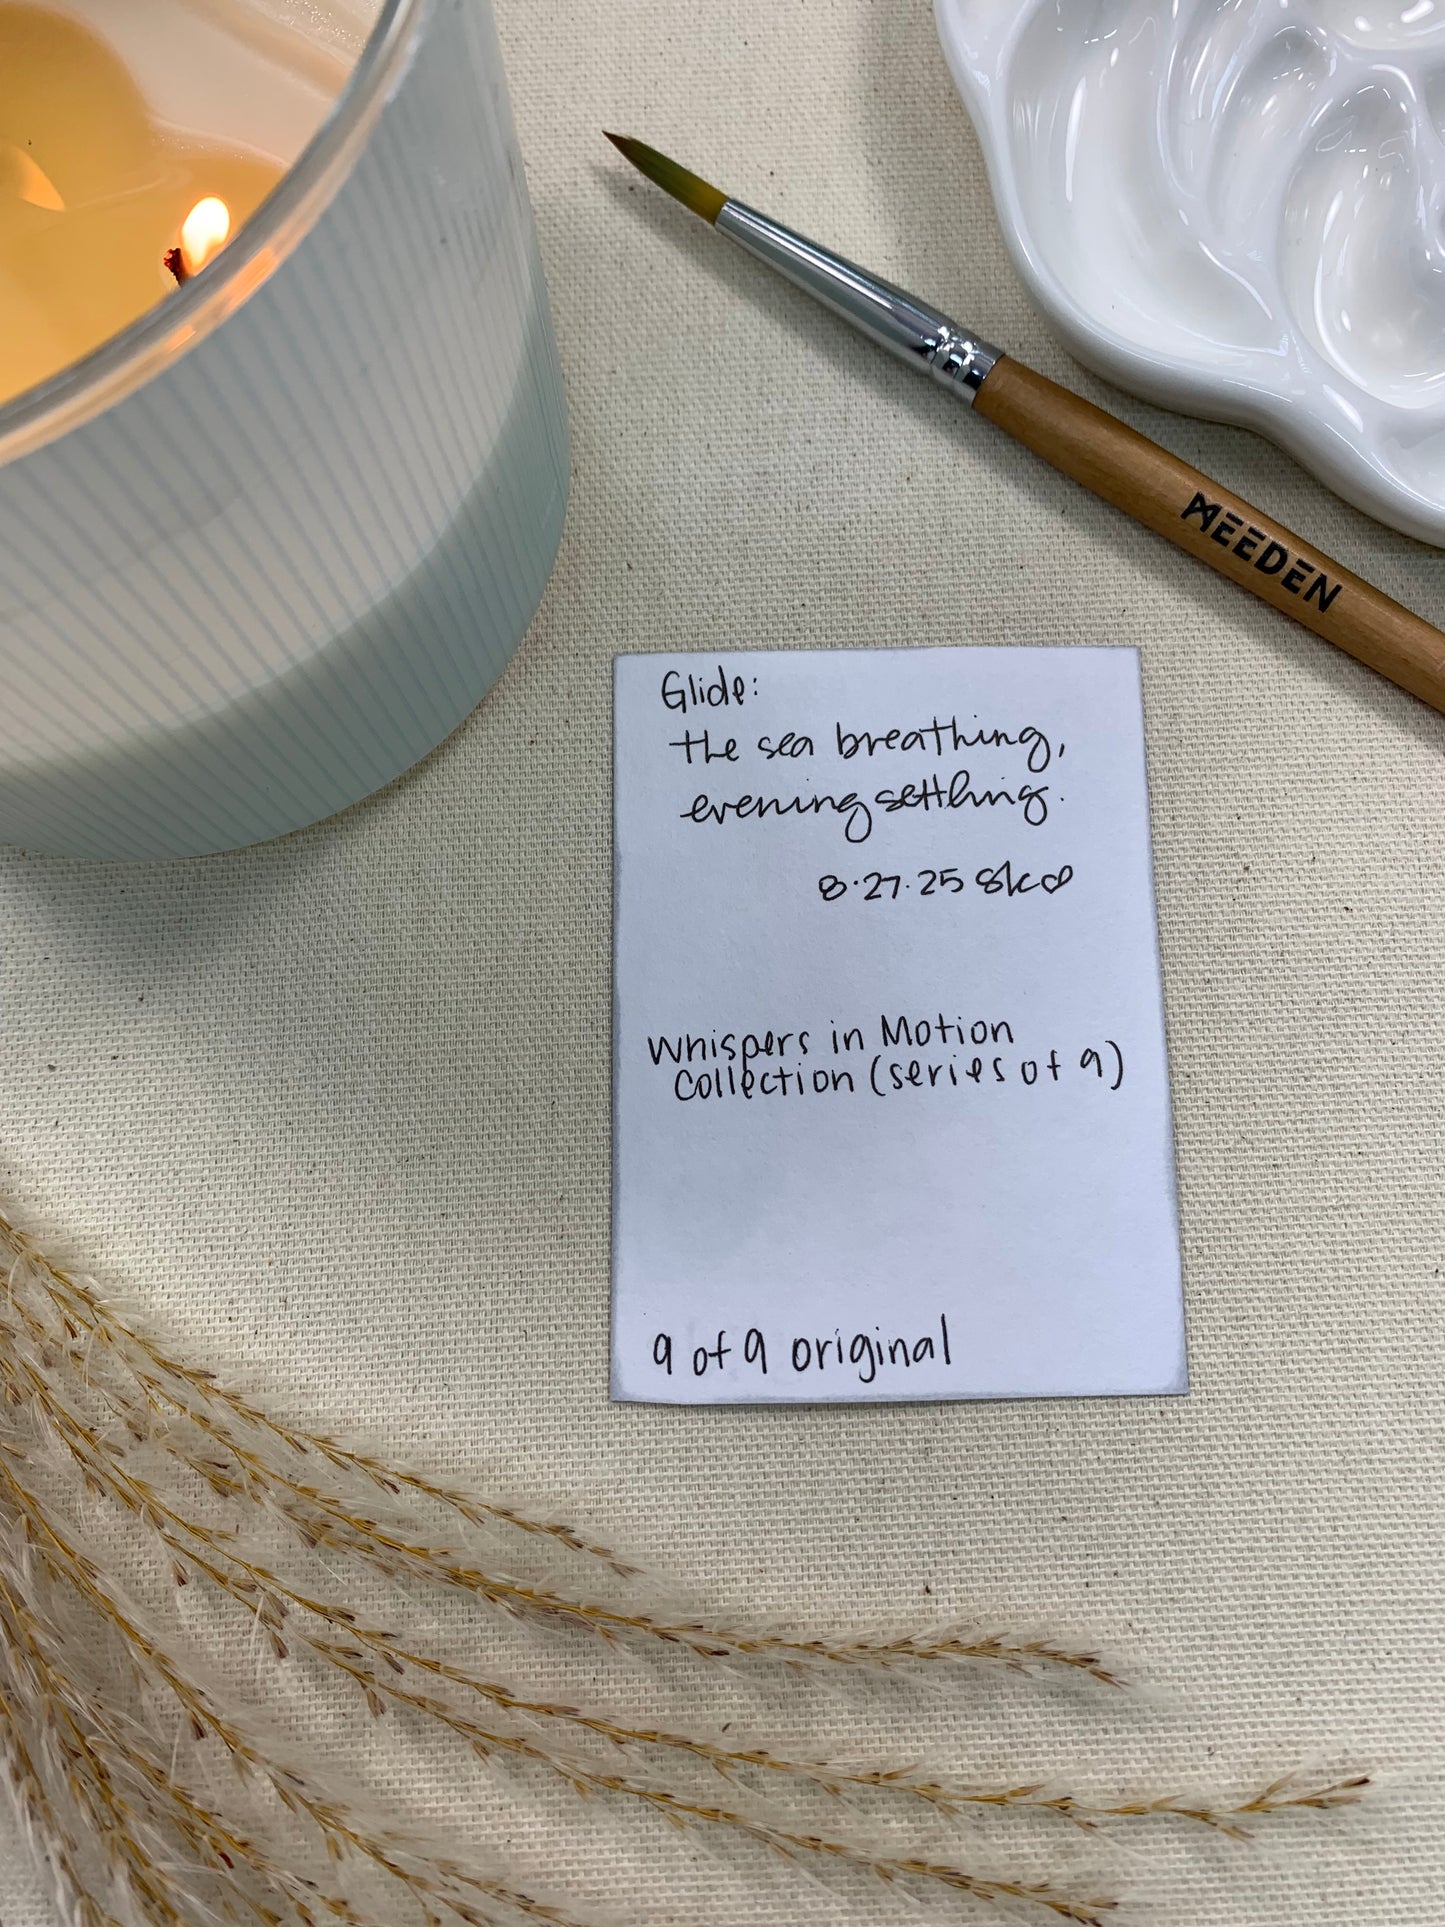 MEEDEN
Glide:
the sea breathing,
evening settling.
8·27·25 SK♡
Whispers in Motion
Collection (series of 9)
9 of 9 original